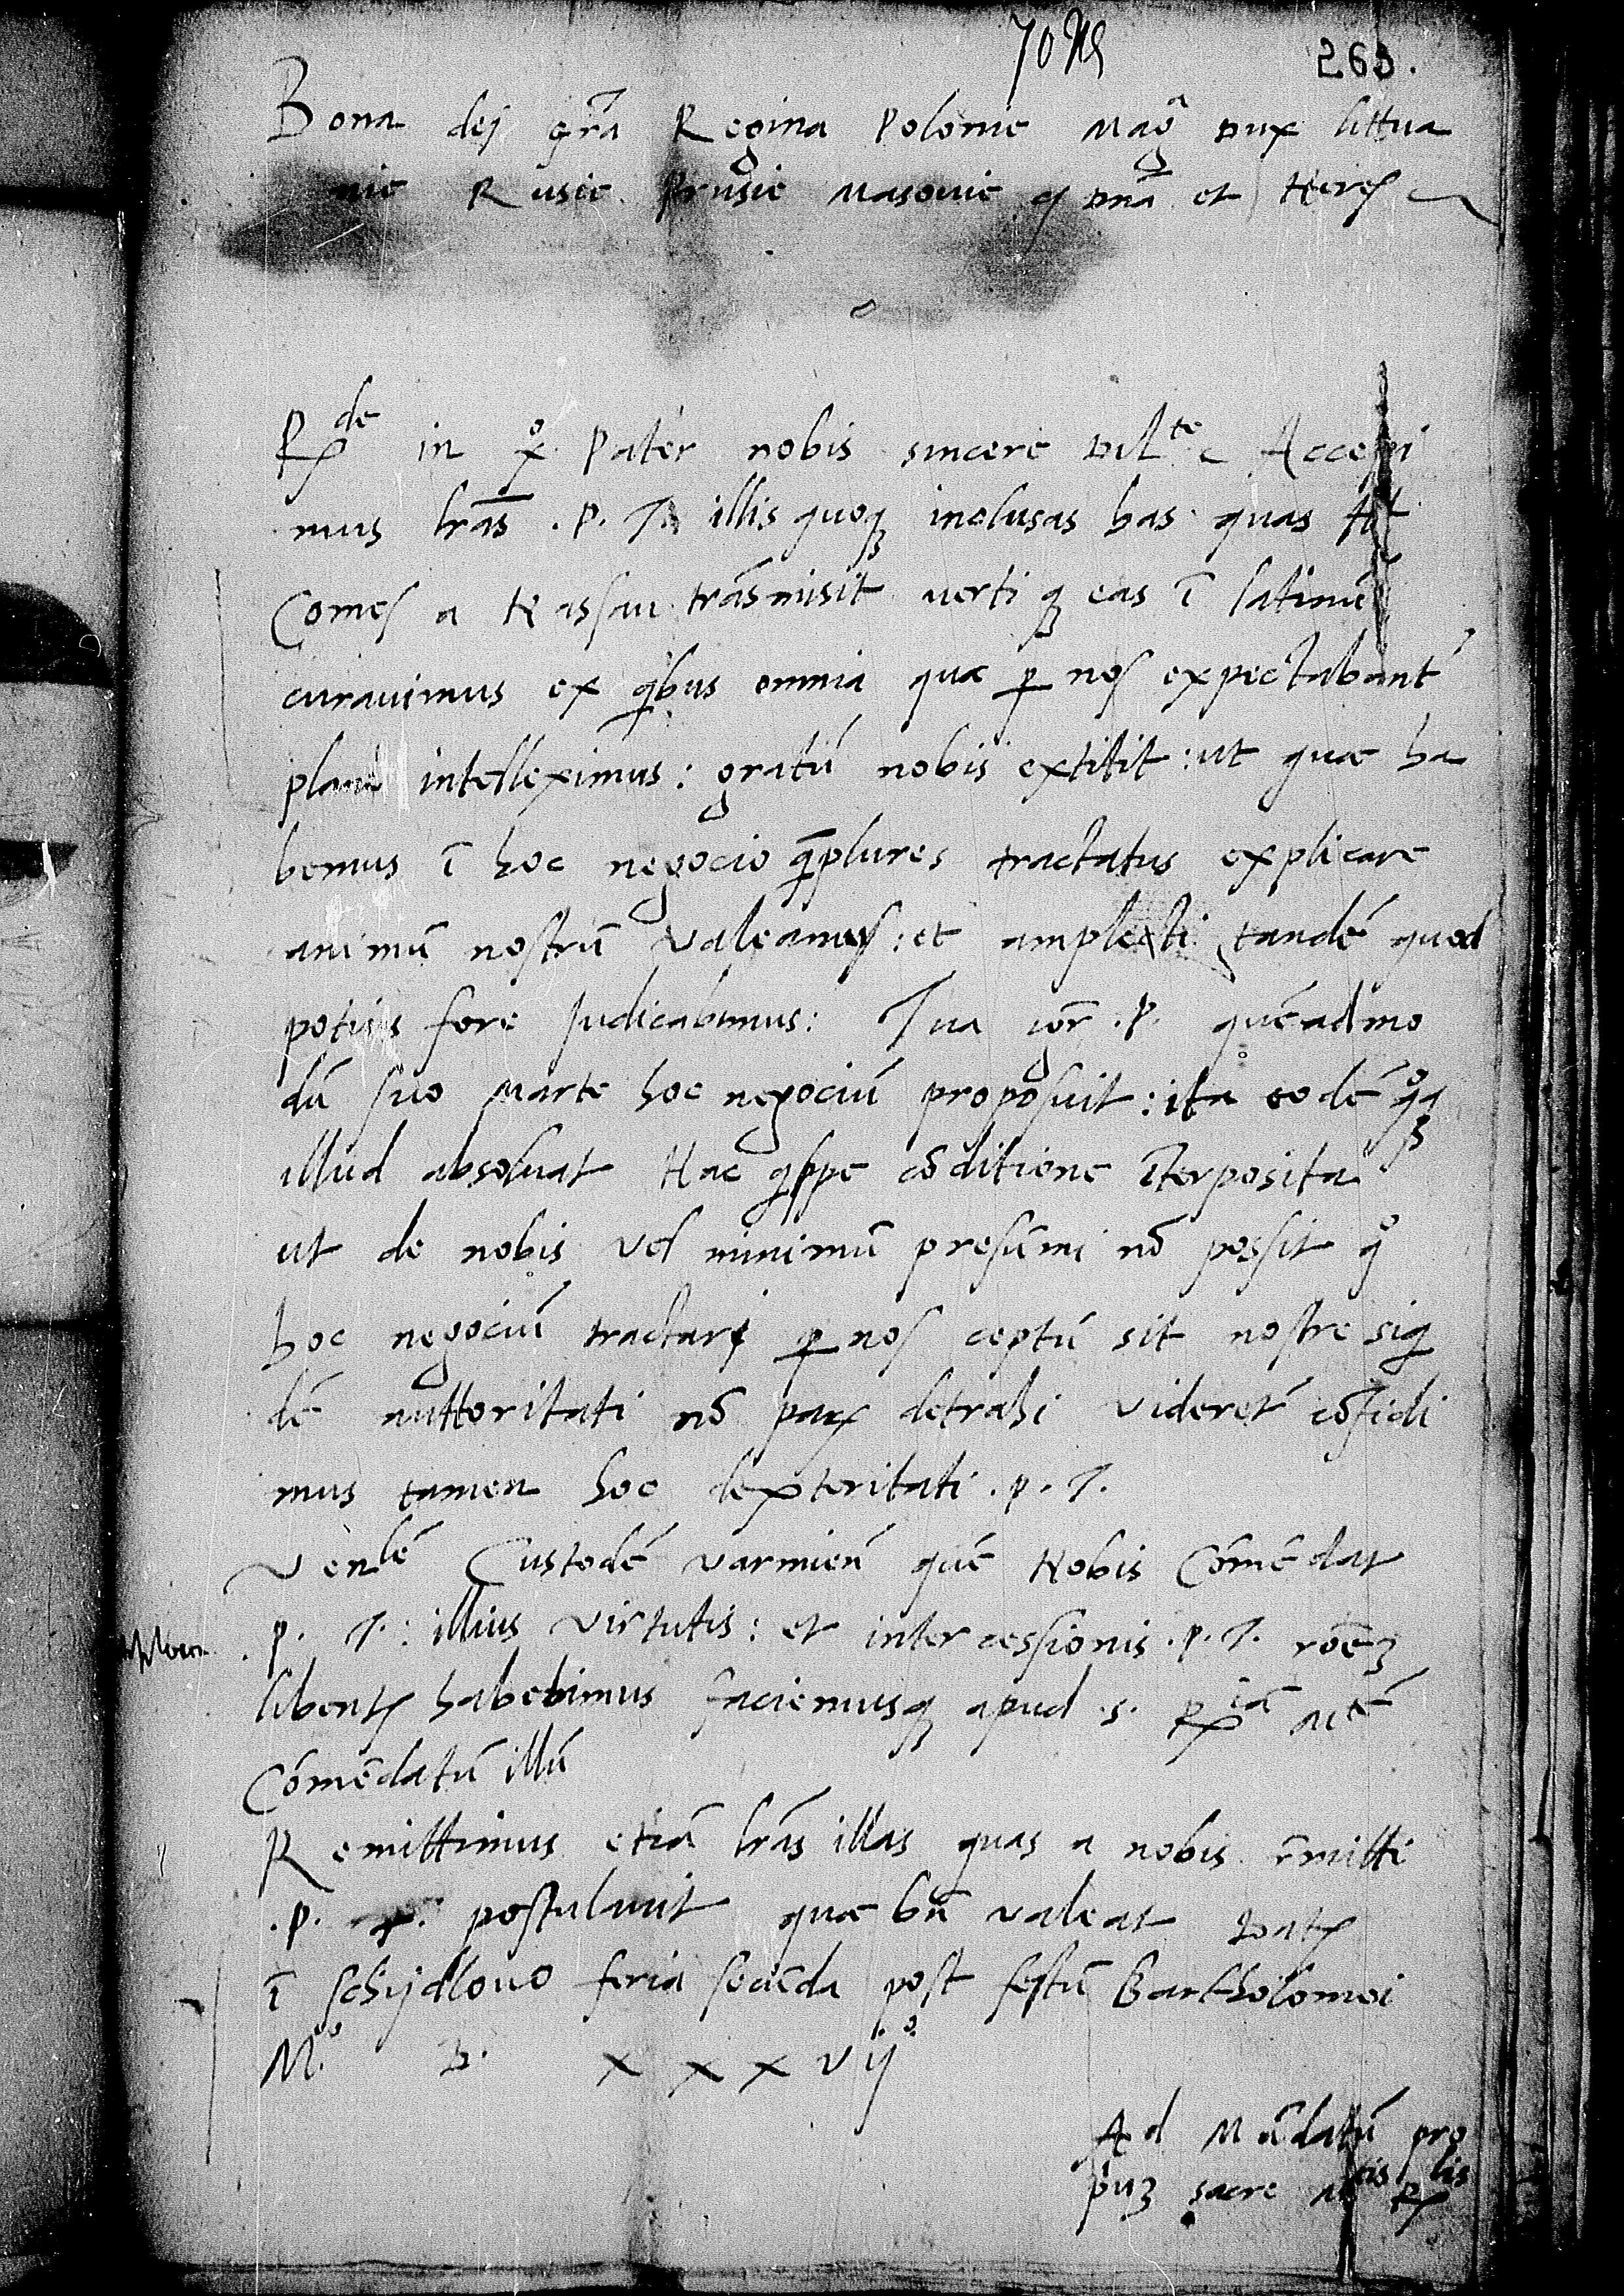 263.
Bona dej gr̃a Regina Polonie Magᵃ Dux littua
nie Rusie Prusie Masouie ꝫ dnã et Heres
Rᵈᵉ in xᵒ Pater nobis sincere Dilᵗᵉ Accepi
mus lr̃as .P. T. illis quoqꝫ inclusas has quas
Comes a Nassau trãsmisit uertiqꝫ eas ĩ latinũ
curauimus ex qͥbus omnia quæ ꝑ nos expectabant᷑
plane intelleximus: gratũ nobis extitit: ut quæ ha
bemus ĩ hoc negocio q̃plures tractatus explicare
animũ nostrũ valeamus: et amplecti tandẽ quod
potius fore judicabimus: Tua igr̃ .P. quẽadmo
dũ suo Marte hoc negociũ proposuit: ita eodẽ qᵒqꝫ
illud absoluat Hac qͥppe cõditione ĩterposita
ut de nobis vel minimũ presũmi nõ possit qᵒ
hoc negociũ tractari ꝑ nos ceptũ sit nostre siqͥ
dẽ auttoritati nõ paꝝ detrahi videret᷑ cõfidi
mus tamen hoc dexteritati .p. T.
Venlẽ Custodẽ varmieñ quẽ Nobis Cõmẽdat
p. T.: illius virtutis: et intercessionis .p. T. rõeꝫ
libent᷑ habebimus faciemusqꝫ apud .s. Rⁱᵃ̃ Mtẽ
Cõmẽdatũ illũ
Remittimus etiã lr̃as illas quas a nobis r̃mitti
.P. T. postulauit quæ bñ valeat Dat᷑
ĩ Schijdlouo feria secũda post festũ Bartholomei
Mᵒ. D. xxxvijᵒ
Ad Mãdatũ pro
priuꝫ sacre Mᵗⁱˢ Rˡⁱˢ